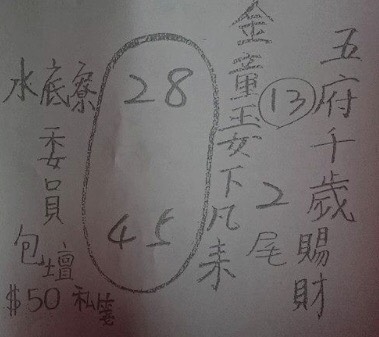 五府千歲賜財
13
2尾
金童玉女下凡來
28
45
水底寮
委員
包壇
$50 私籤